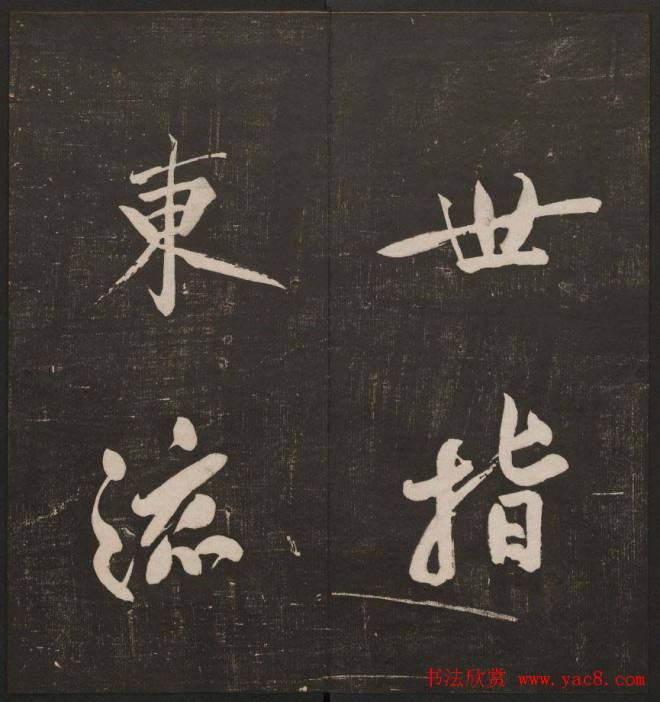 世指
東流
书法欣赏 www.yac8.com